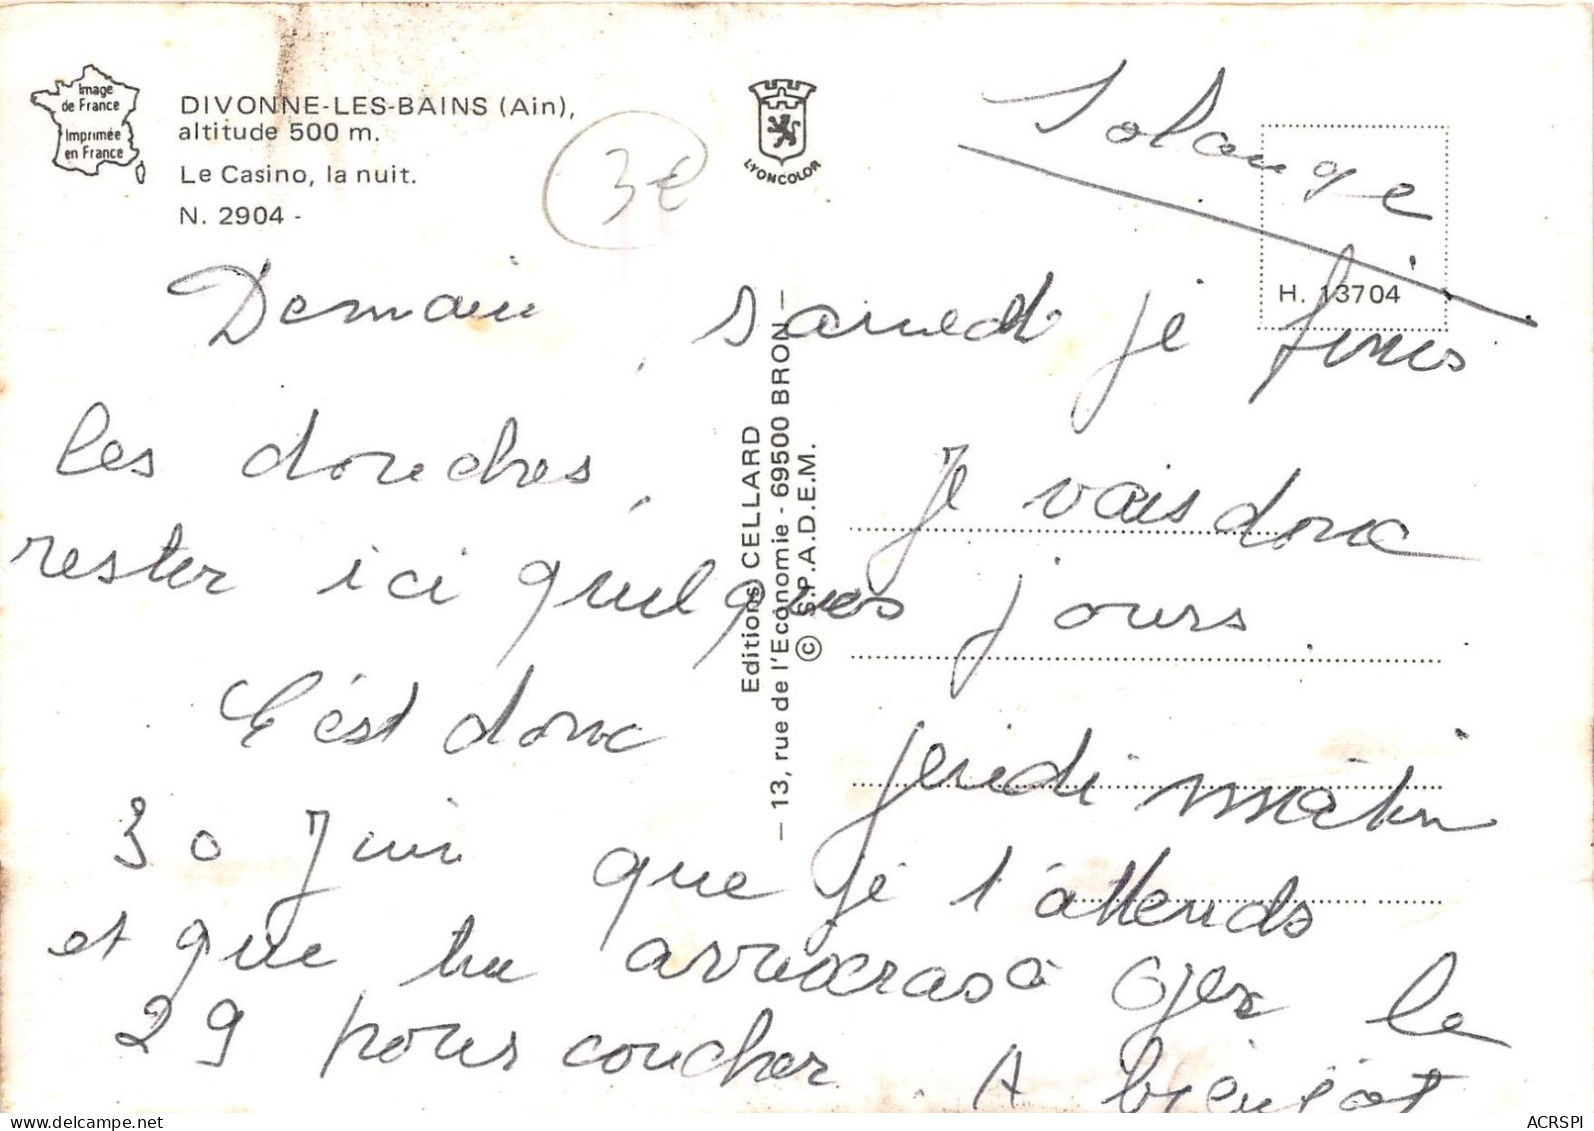 Image
de France
Imprimée
en France
DIVONNE-LES-BAINS (Ain),
altitude 500 m.
Le Casino, la nuit.
N. 2904 -
3€
LYONCOLOR
Solange
H. 13704
Demain, samedi je finis
les douches. Je vais donc
rester ici quelques jours.
C'est donc jeudi matin
30 Juin que je t'attends
et que tu arriveras à Gex le
29 pour coucher. A bientôt
Editions CELLARD
— 13, rue de l'Economie - 69500 BRON —
© S.P.A.D.E.M.
ACRSPI